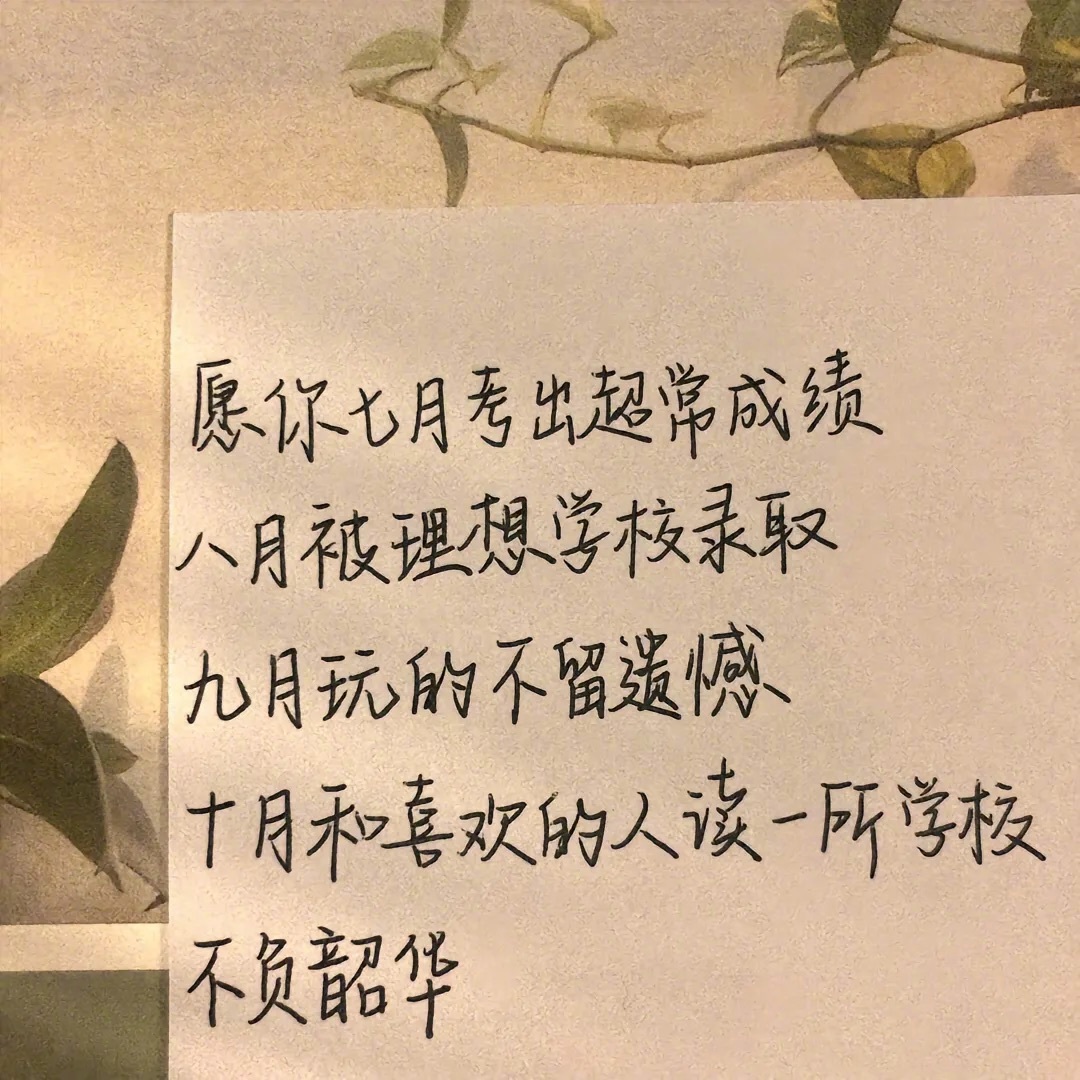 愿你七月考出超常成绩
八月被理想学校录取
九月玩的不留遗憾
十月和喜欢的人读一所学校
不负韶华